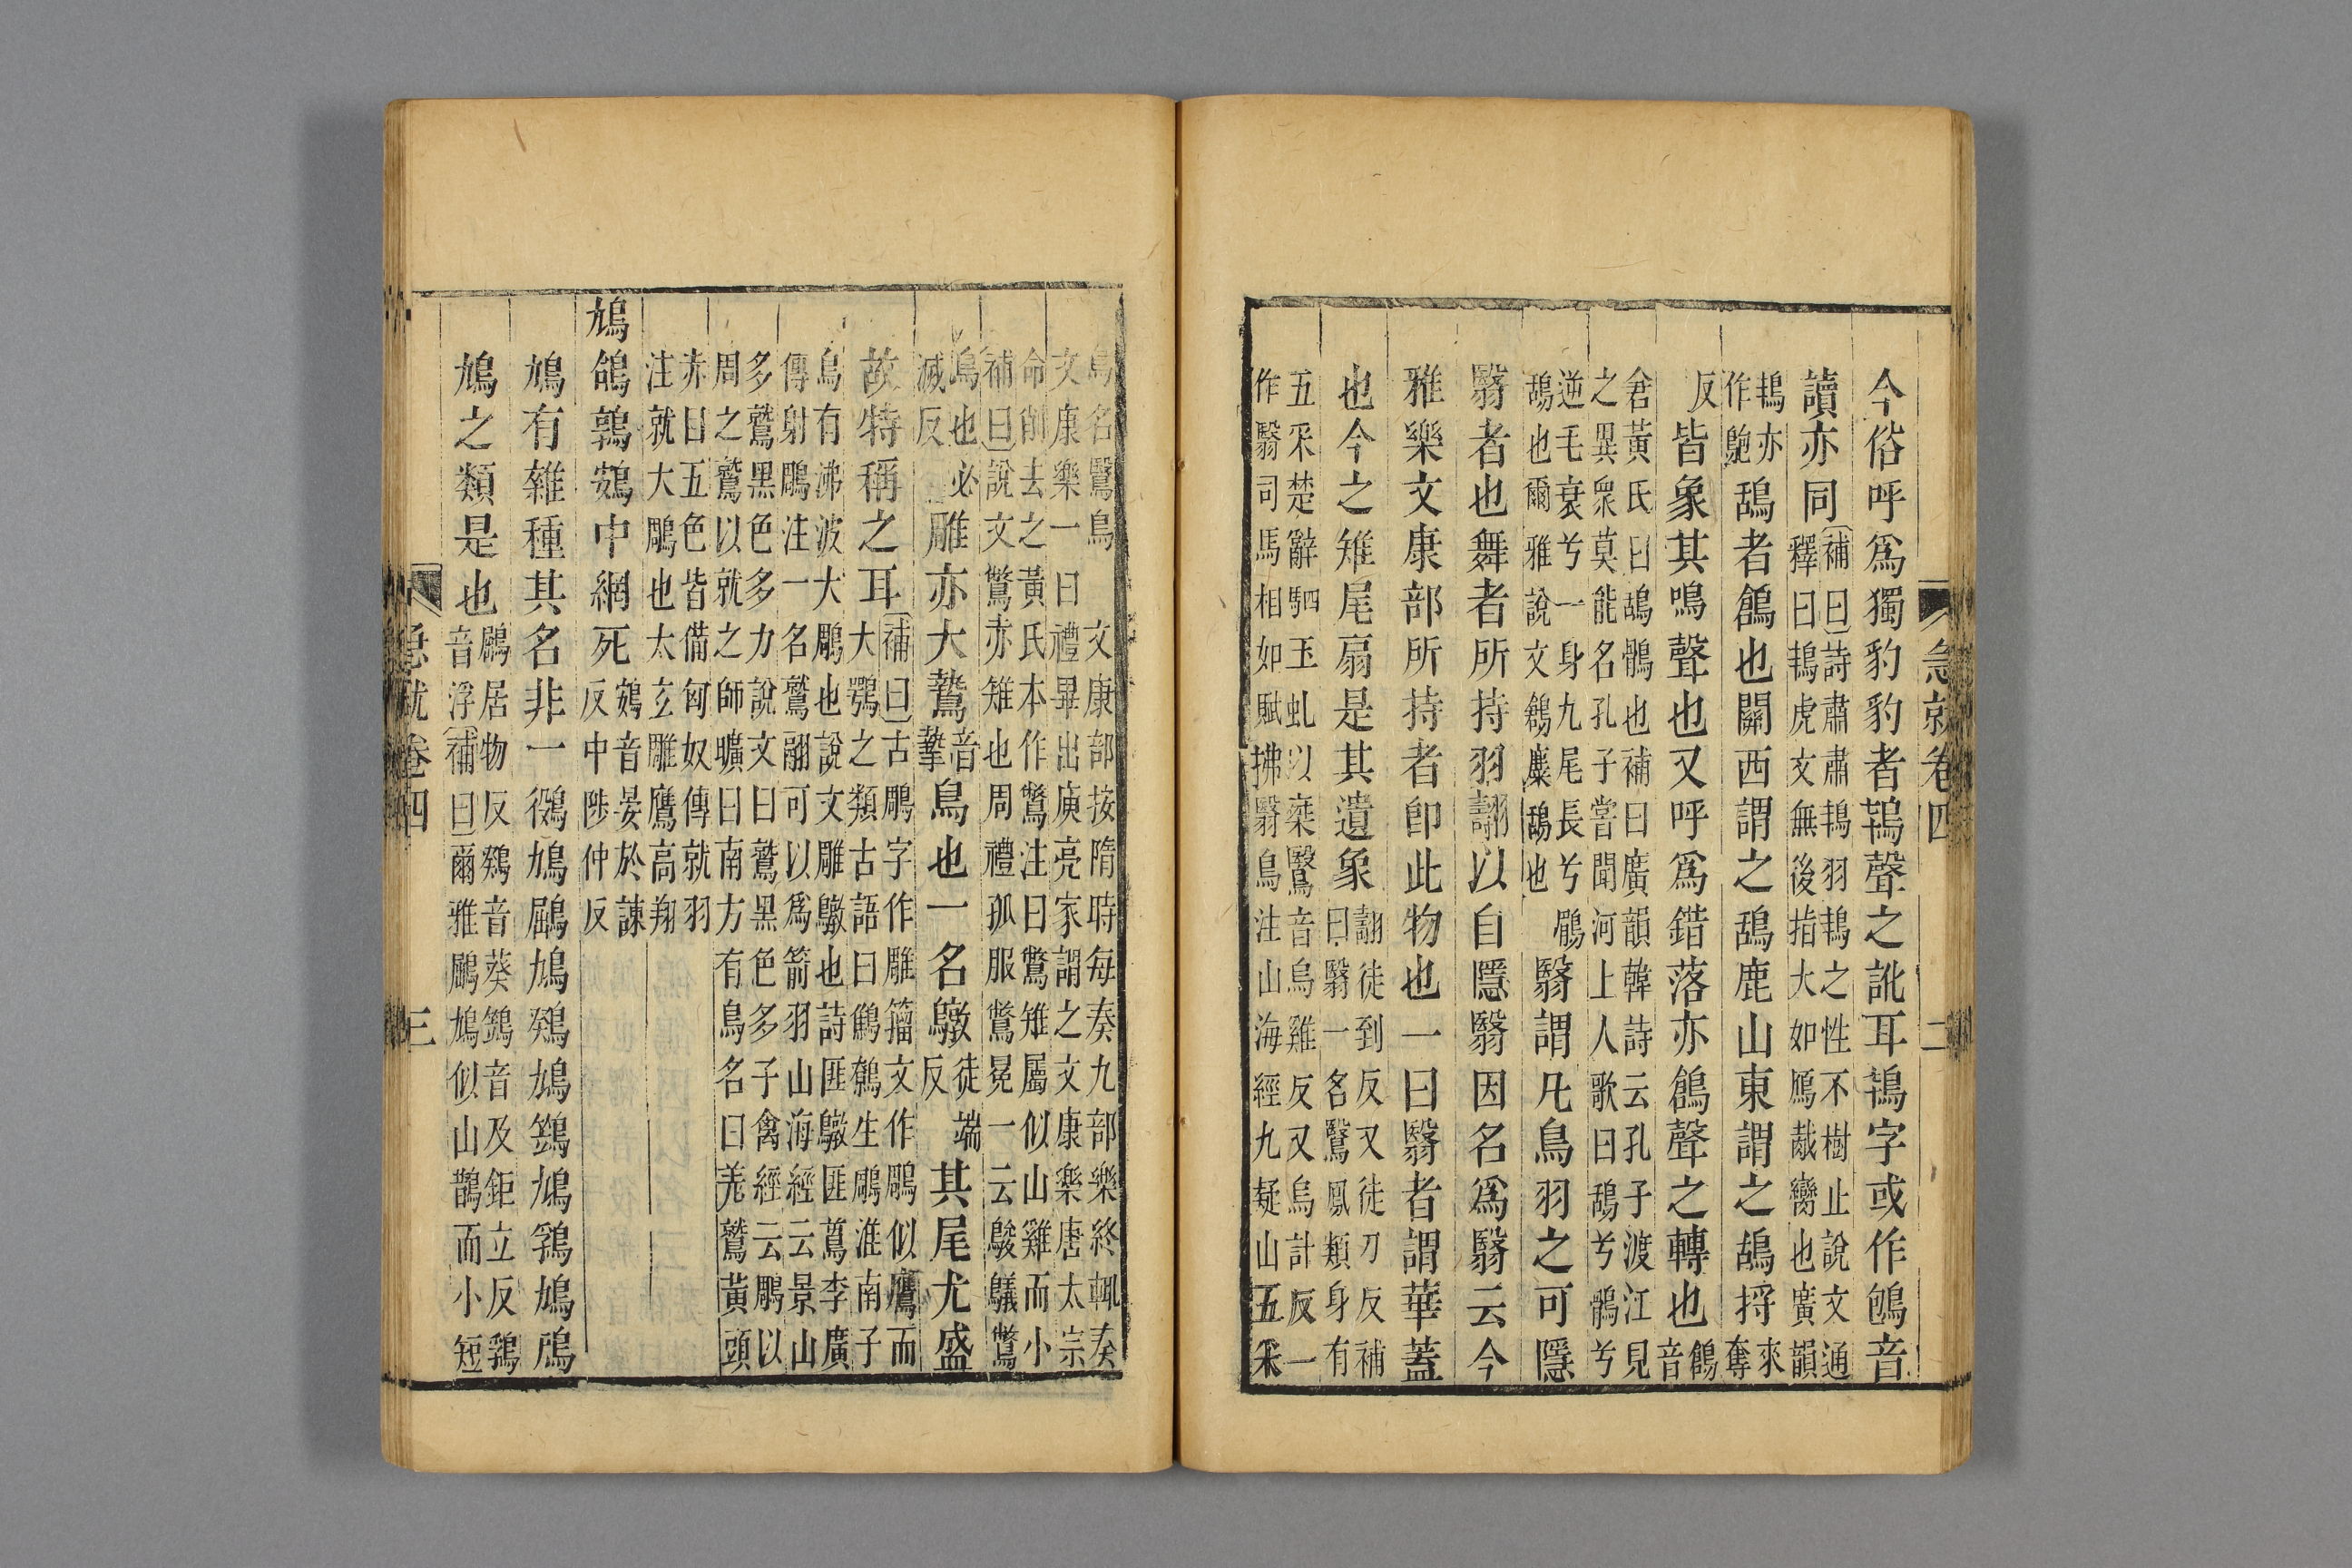 急就卷四
二
今俗呼爲獨豹豹者鴇聲之訛耳鴇字或作鴇音
讀亦同補曰詩肅肅鴇羽鴇之性不樹止說文通
釋曰鴇虎文無後指大如鴈胾臠也廣韻
鴇亦
作鴕鴰者鶬也關西謂之鴰鹿山東謂之鴰捋來
奪
反皆象其鳴聲也又呼爲錯落亦鶬聲之轉也鶬
音
君黃氏曰鴣鶻也補曰廣韻韓詩云孔子渡江見
之異衆莫能名孔子嘗聞河上人歌曰鴰兮鶻兮
逆毛衰兮一身九尾長兮
鴰也爾雅說文鶬麋鴰也翳謂凡鳥羽之可隱
翳者也舞者所持羽翿以自隱翳因名爲翳云今
雅樂文康部所持者卽此物也一曰翳者謂華蓋
也今之雉尾扇是其遺象翿徒到反又徒刀反補
曰翳一名鷖鳳類身有
五采楚辭駟玉虬以椉鷖音烏雞反又烏計反一
作翳司馬相如賦拂翳鳥注山海經九疑山五采
鳥名鷖鳥
文康部按隋時每奏九部樂終輒奏
文康樂一曰禮畢出庾亮家謂之文康樂唐太宗
命削去之黃氏本作鷩注曰鷩雉屬似山雞而小
補曰說文鷩赤雉也周禮孤服鷩冕一云鵔鸃鷩
鳥也必
滅反雕亦大鷙音
摯鳥也一名鷻徒端
反其尾尤盛
故特稱之耳補曰古鵰字作雕籀文作鵰似鷹而
大鶚之類古語曰鷦鷯生鵰淮南子
鳥有沸波大鵰也說文雕鷻也詩匪鷻匪蔦李廣
傳射鵰注一名鷲翮可以爲箭羽山海經云景山
多鷲黑色多力說文曰鷲黑色多子禽經云鵰以
周之鷲以就之師曠曰南方有鳥名曰羌鷲黃頭
赤目五色皆備匈奴傳就羽
注就大鵰也太玄雕鷹高翔
鳩鴿鶉鴳中網死鴳音晏於諫
反中陟仲反
鳩有雜種其名非一鵧鳩鶌鳩鶏鳩鵭鳩鶉鳩鳲
鳩之類是也鶌居物反鶏音葵鵭音及鉅立反鶉
音浮補曰爾雅鶌鳩似山鵲而小短
急就卷四
三